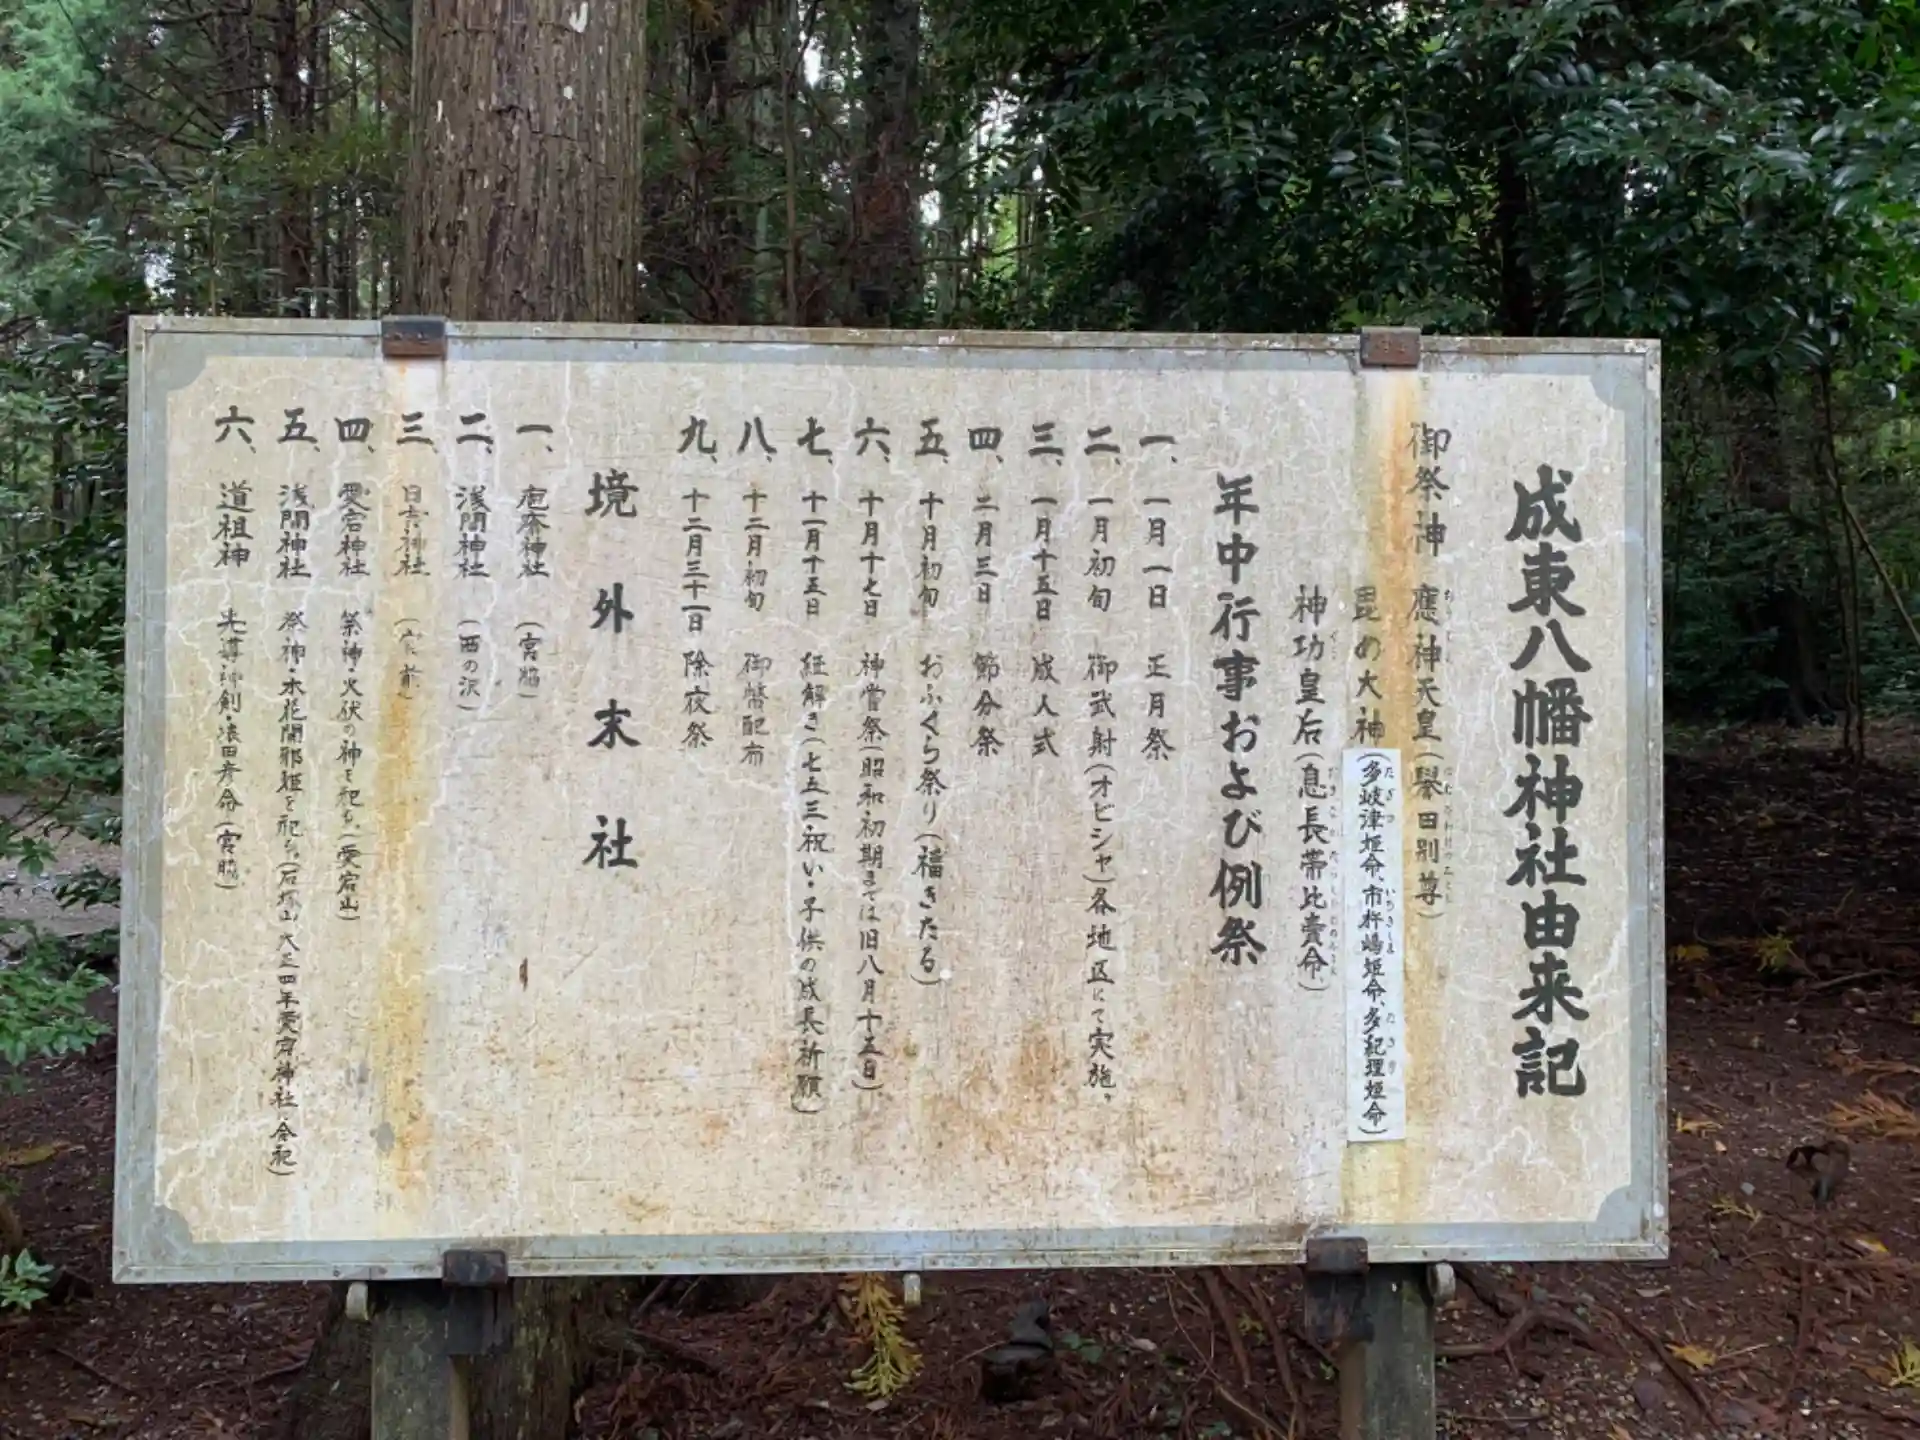 成東八幡神社由来記
御祭神 應神天皇(譽田別尊)
毘め大神(多岐津姫命、市杵嶋姫命、多紀理姫命)
神功皇后(息長帯比賣命)
年中行事および例祭
一、一月一日 正月祭
二、一月初旬 御武射(オビシャ)各地区にて実施。
三、一月十五日 成人式
四、二月三日 節分祭
五、十月初旬 おふくら祭り(福きたる)
六、十月十七日 神嘗祭(昭和初期までは旧八月十五日)
七、十一月十五日 紐解き(七五三祝い・子供の成長祈願)
八、十二月初旬 御幣配布
九、十二月三十一日 除夜祭
境外末社
一、疱瘡神社(宮脇)
二、浅間神社(西の沢)
三、日吉神社(宮前)
四、愛宕神社 祭神・火伏の神を祀る。(愛宕山)
五、浅間神社 祭神・木花開耶姫を祀る。(石塚山 大正四年愛宕神社・合祀)
六、道祖神 先導神・猿田彦命(宮脇)